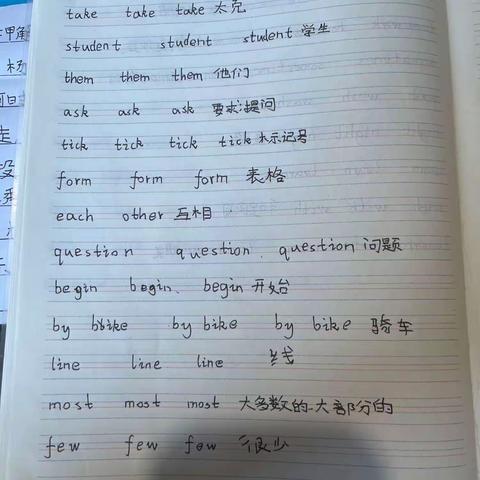 take take take 太克
student student student 学生
them them them 他们
ask ask ask 要求;提问
tick tick tick tick 标示记号
form form form 表格
each other 互相
question question question 问题
begin begin begin 开始
by bbike by bike by bike 骑车
line line line 线
most most most 大多数的.大部分的
few few few 很少